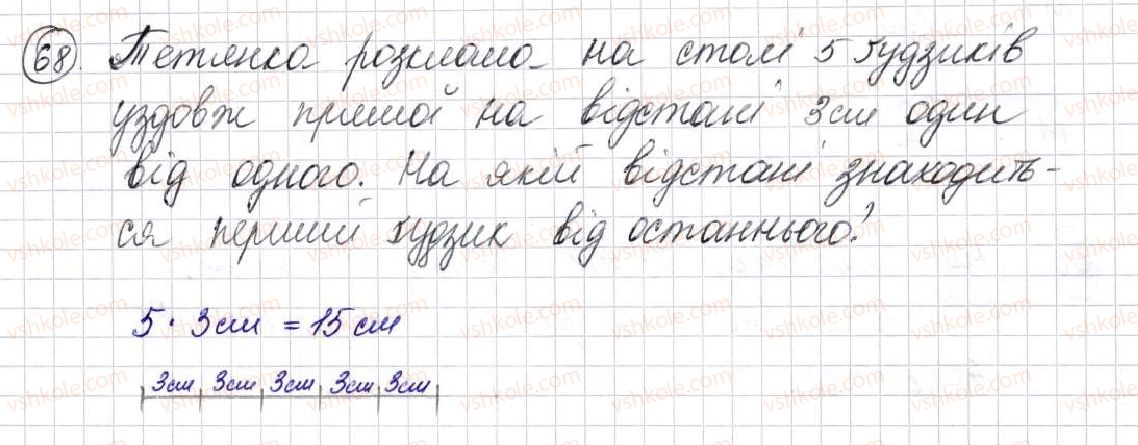 68 Тетянка розклала на столі 5 ґудзиків
уздовж прямої на відстані 3см один
від одного. На якій відстані знаходить-
ся перший ґудзик від останнього?
5 · 3см = 15 см
3см 3см 3см 3см 3см